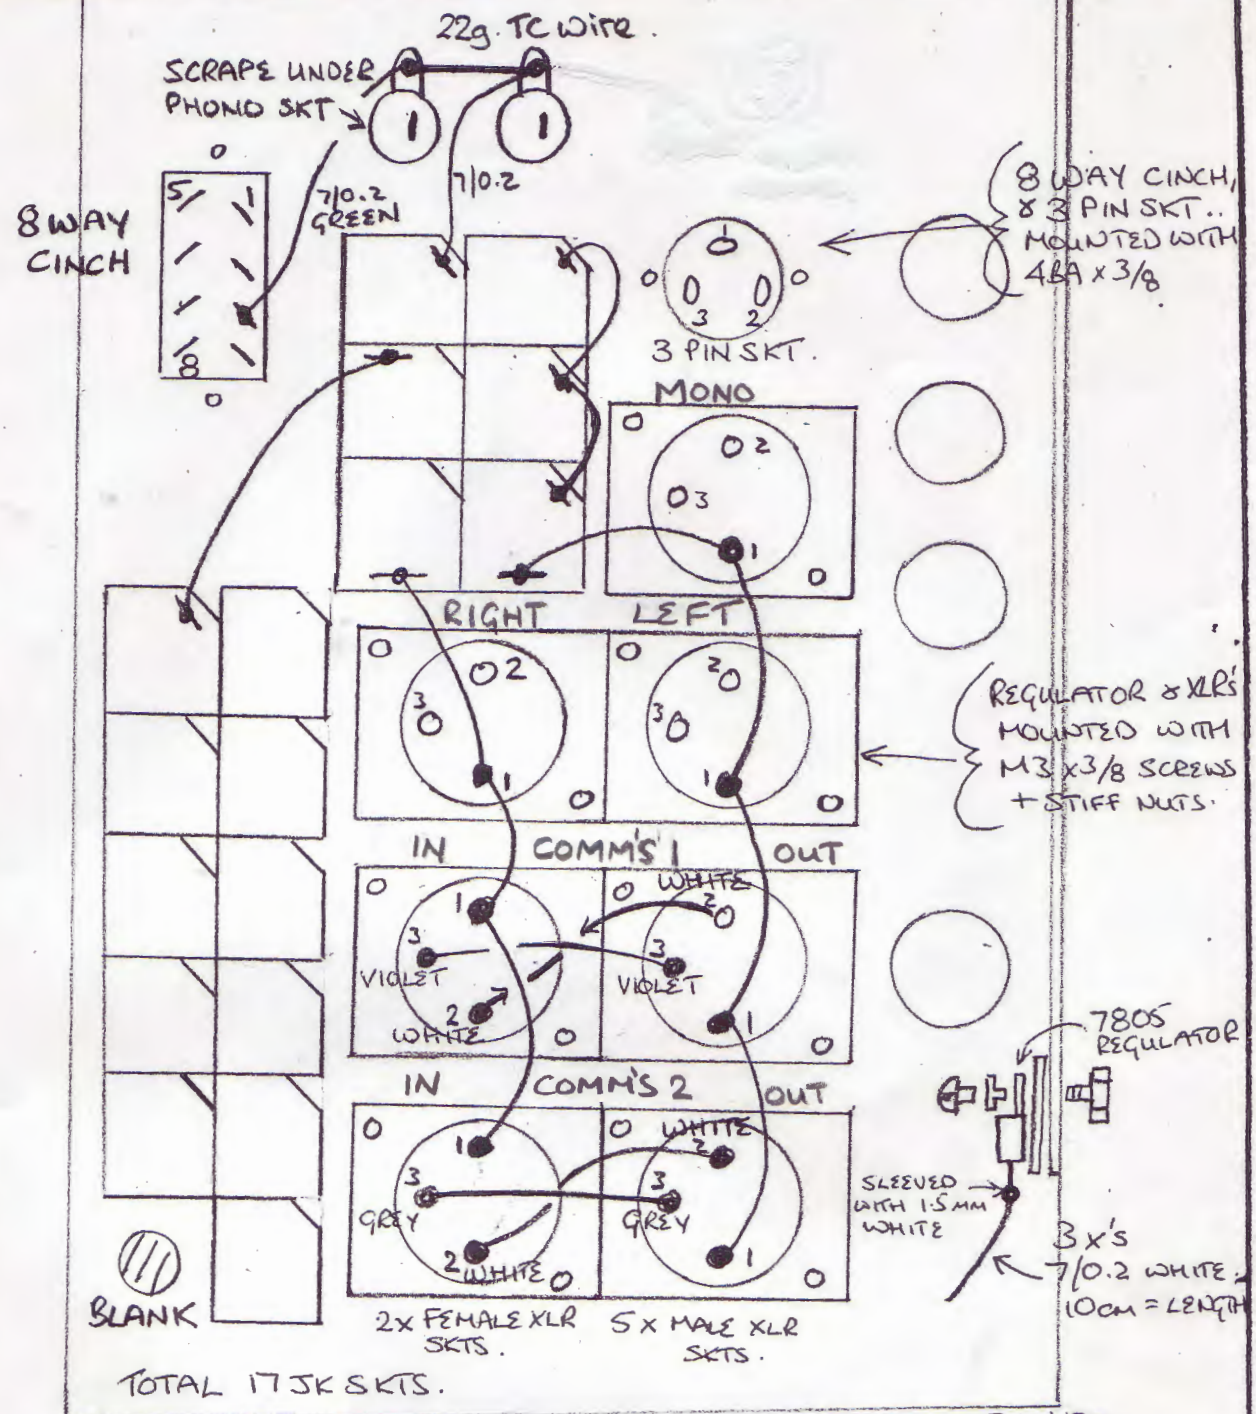 22g. TC Wire.
SCRAPE UNDER
PHONO SKT
1
1
7/0.2
GREEN
7/0.2
8 WAY
CINCH
5
1
8
8 WAY CINCH,
& 3 PIN SKT..
MOUNTED WITH
4BA x 3/8
3
2
3 PIN SKT.
MONO
2
3
1
RIGHT
LEFT
2
3
1
2
3
1
REGULATOR & XLR'S
MOUNTED WITH
M3 x 3/8 SCREWS
+ STIFF NUTS.
IN
COMM'S 1
OUT
1
3
VIOLET
2
WHITE
WHITE
2
3
VIOLET
1
IN
COMM'S 2
OUT
7805
REGULATOR
1
3
GREY
2
WHITE
WHITE
2
3
GREY
1
SLEEVED
WITH 1.5MM
WHITE
3 x's
7/0.2 WHITE.
10cm = LENGTH
BLANK
2x FEMALE XLR
SKTS.
5 x MALE XLR
SKTS.
TOTAL 17 JK SKTS.